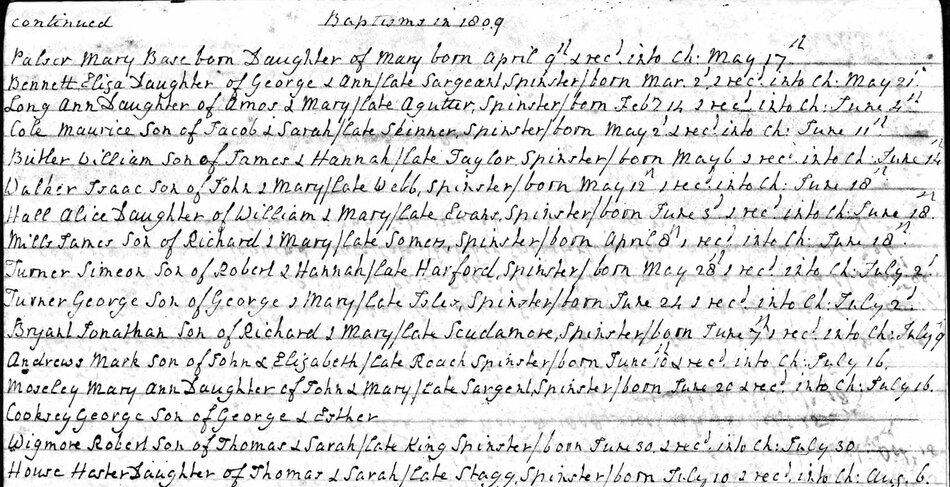 continued Baptisms in 1809
Palser Mary Base born Daughter of Mary born April 9th & rec'd into Ch: May 17th
Bennett Eliza Daughter of George & Ann/late Sargeant, Spinster/born Mar. 2d, & rec'd into Ch: May 21st
Long Ann Daughter of Amos & Mary/late Agutter, Spinster/born Feb 14 & rec'd into Ch: June 4th
Cole Maurice Son of Jacob & Sarah/late Skinner, Spinster/born May 2d & rec'd into Ch: June 11th
Butler William Son of James & Hannah/late Taylor, Spinster/born May 6 & rec'd into Ch: June 14
Walker Isaac Son of John & Mary/late Webb, Spinster/born May 12th & rec'd into Ch: June 18th
Hall Alice Daughter of William & Mary/late Evans, Spinster/born June 3d & rec'd into Ch: June 18.
Mills James Son of Richard & Mary/late Somers, Spinster/born April 8th & rec'd into Ch: June 18th
Turner Simeon Son of Robert & Hannah/late Harford, Spinster/born May 28th & rec'd into Ch: July 2d
Turner George Son of George & Mary/late Isles, Spinster/born June 24 & rec'd into Ch: July 2d
Bryant Jonathan Son of Richard & Mary/late Scudamore, Spinster/born June 7th & rec'd into Ch: July 9
Andrews Mark Son of John & Elizabeth/late Roach Spinster/born June 10 & rec'd into Ch: July 16.
Moseley Mary Ann Daughter of John & Mary/late Sargent, Spinster/born June 20 & rec'd into Ch: July 16.
Cooksey George Son of George & Esther
Wigmore Robert Son of Thomas & Sarah/late King Spinster/born June 30. & rec'd into Ch: July 30
House Haster Daughter of Thomas & Sarah/late Stagg, Spinster/born July 10 & rec'd into Ch: Aug. 6.